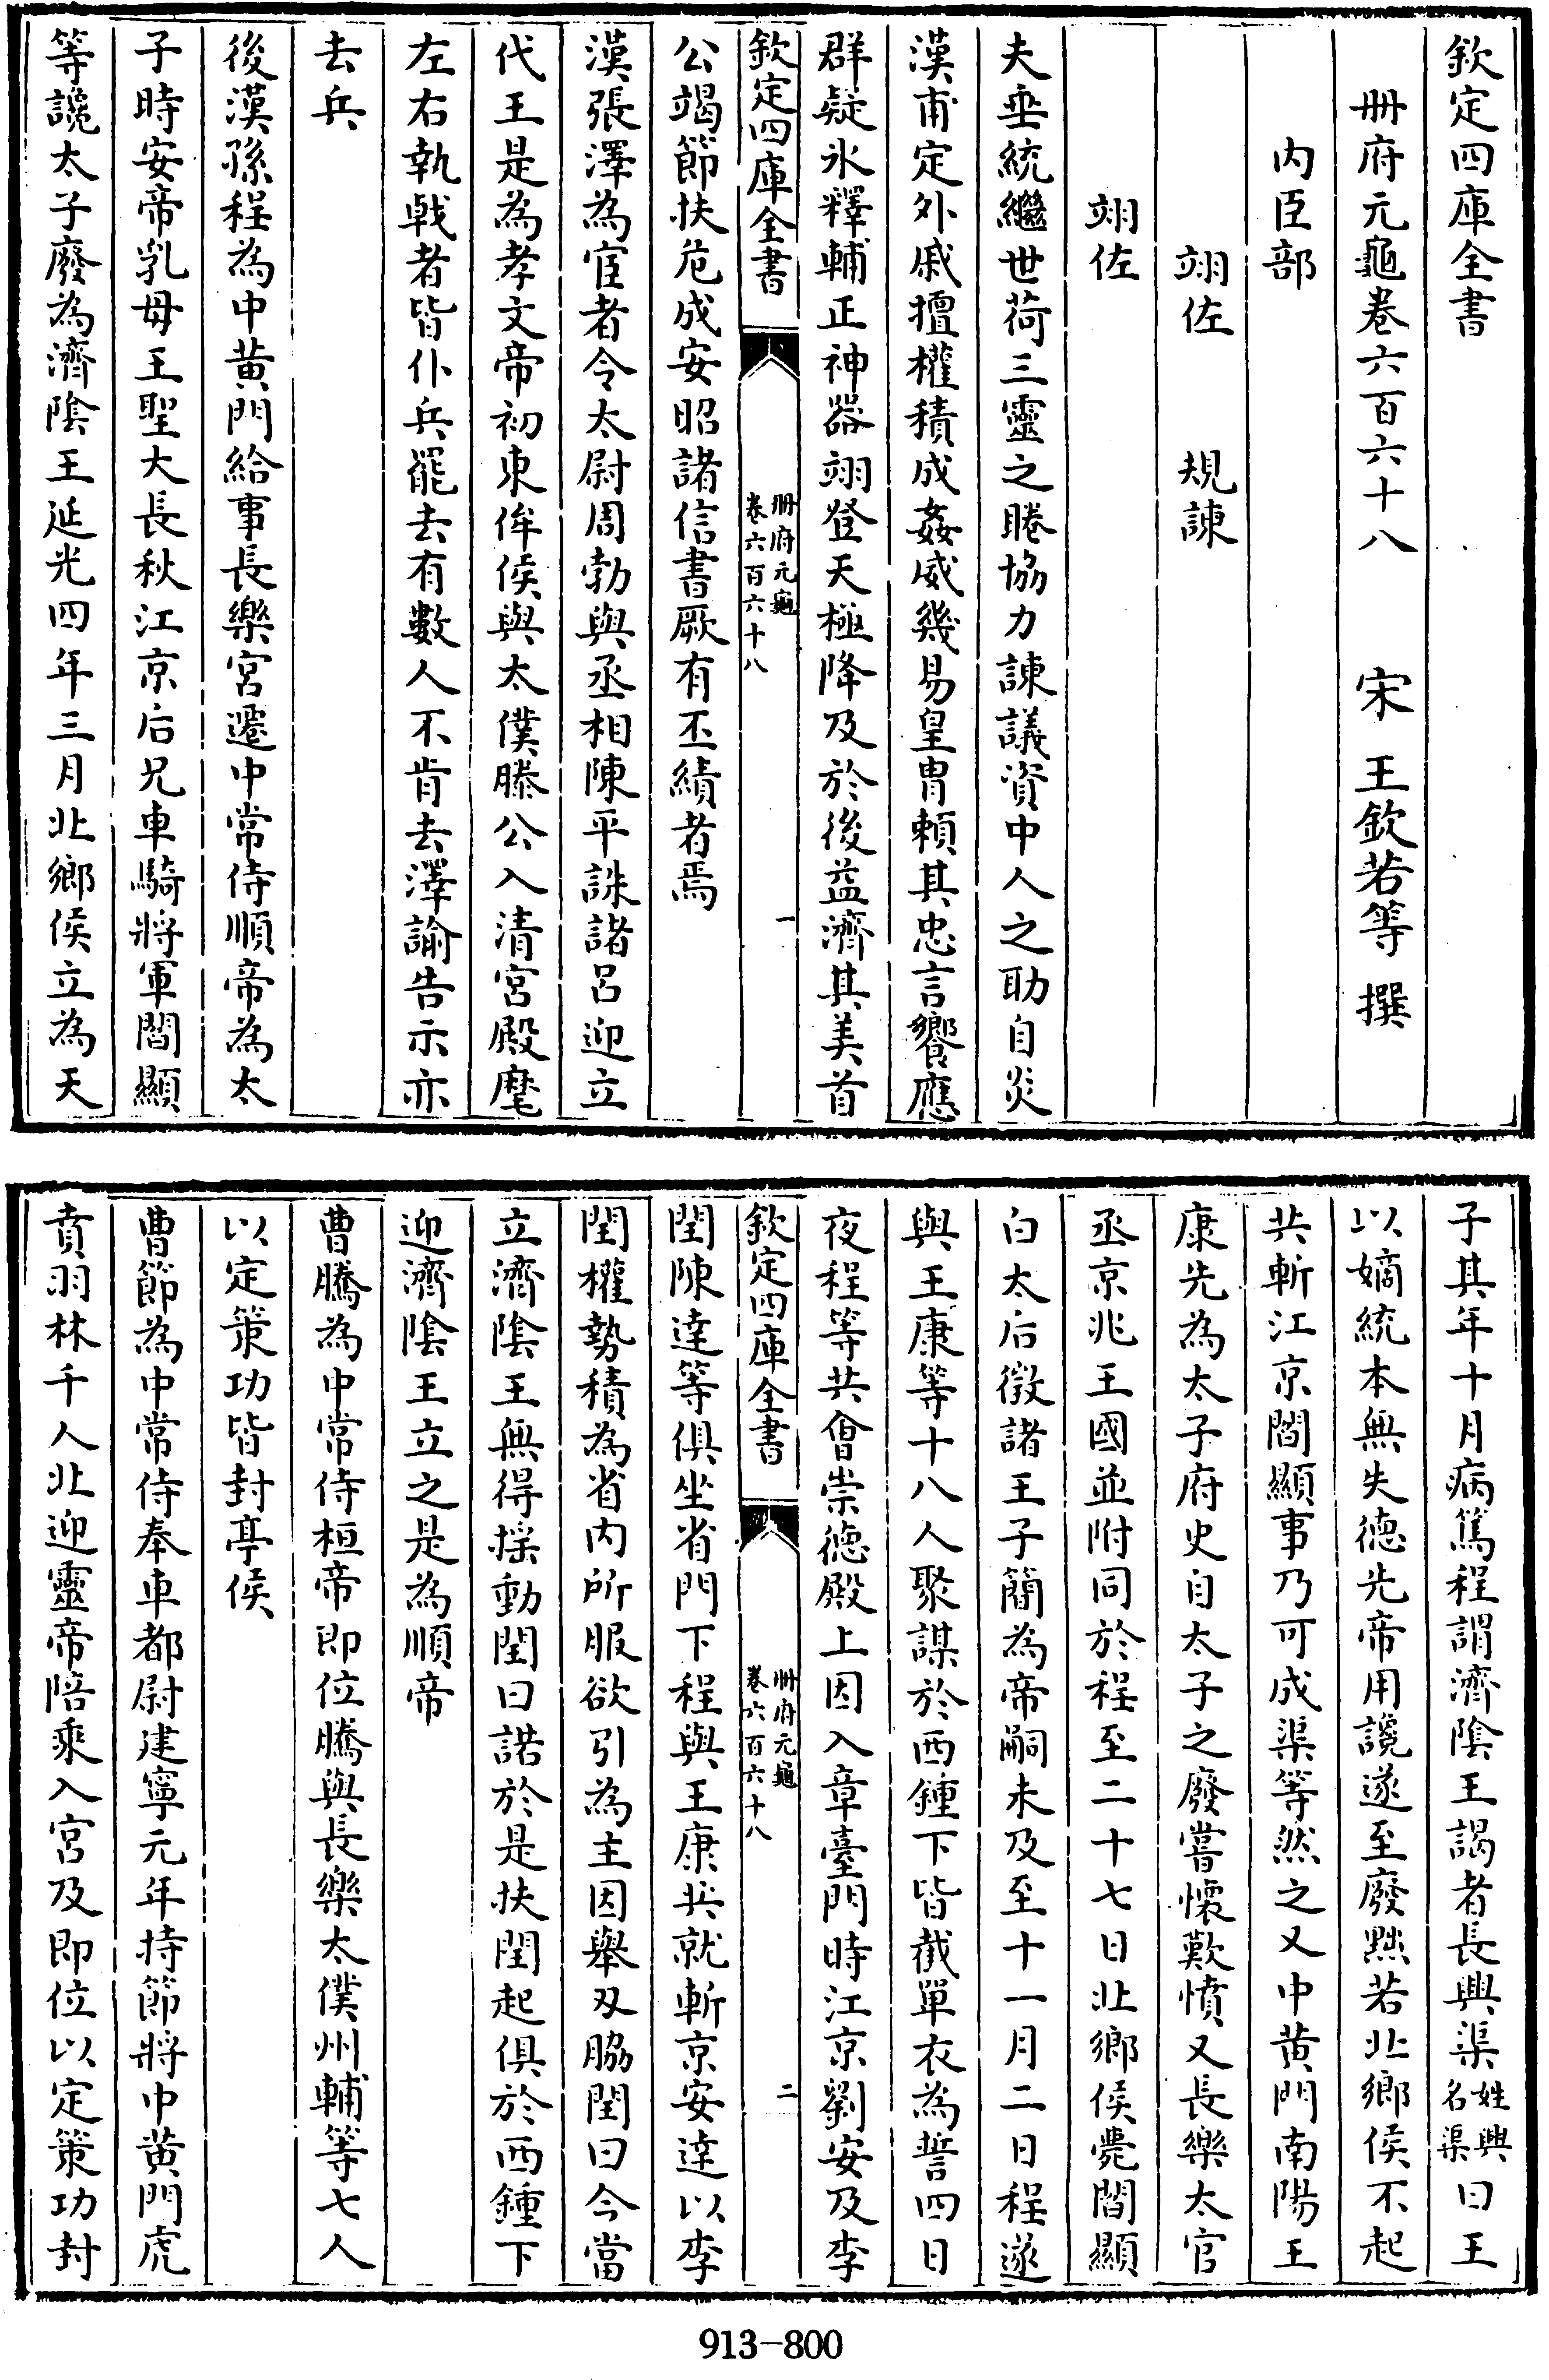 欽定四庫全書
冊府元龜卷六百六十八　宋　王欽若等　撰
內臣部
翊佐　規諫
翊佐
夫垂統繼世荷三靈之睠協力諫議資中人之助自炎
漢甫定外戚擅權積成姦威幾易皇胄賴其忠言饗應
群疑氷釋輔正神器翊登天極降及於後益濟其美首
欽定四庫全書
冊府元龜
卷六百六十八
一
公竭節扶危成安昭諸信書厥有丕績者焉
漢張澤為宦者令太尉周勃與丞相陳平誅諸呂迎立
代王是為孝文帝初東侔侯與太僕滕公入清宮殿麾
左右執戟者皆仆兵罷去有數人不肯去澤諭告示亦
去兵
後漢孫程為中黃門給事長樂宮遷中常侍順帝為太
子時安帝乳母王聖大長秋江京后兄車騎將軍閻顯
等讒太子廢為濟陰王延光四年三月北鄉侯立為天
子其年十月病篤程謂濟陰王謁者長興渠姓興名渠曰王
以嫡統本無失德先帝用讒遂至廢黜若北鄉侯不起
共斬江京閻顯事乃可成渠等然之又中黃門南陽王
康先為太子府史自太子之廢嘗懷歎憤又長樂太官
丞京兆王國並附同於程至二十七日北鄉侯薨閻顯
白太后徵諸王子簡為帝嗣未及至十一月二日程遂
與王康等十八人聚謀於西鍾下皆截單衣為誓四日
夜程等共會崇德殿上因入章臺門時江京劉安及李
欽定四庫全書
冊府元龜
卷六百六十八
二
閏陳逹等俱坐省門下程與王康共就斬京安逹以李
閏權勢積為省內所服欲引為主因舉刄脇閏曰今當
立濟陰王無得搖動閏曰諾於是扶閏起俱於西鍾下
迎濟陰王立之是為順帝
曹騰為中常侍桓帝即位騰與長樂太僕州輔等七人
以定策功皆封亭侯
曹節為中常侍奉車都尉建寧元年持節將中黃門虎
賁羽林千人北迎靈帝陪乘入宮及即位以定策功封
913-800